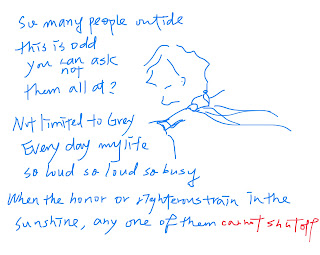 So many people outside
this is odd
you can ask
not
them all at?
Not limited to Grey
Every day my life
so loud so loud so busy
When the honor or righterous train in the
sunshine, any one of them cannot shut off